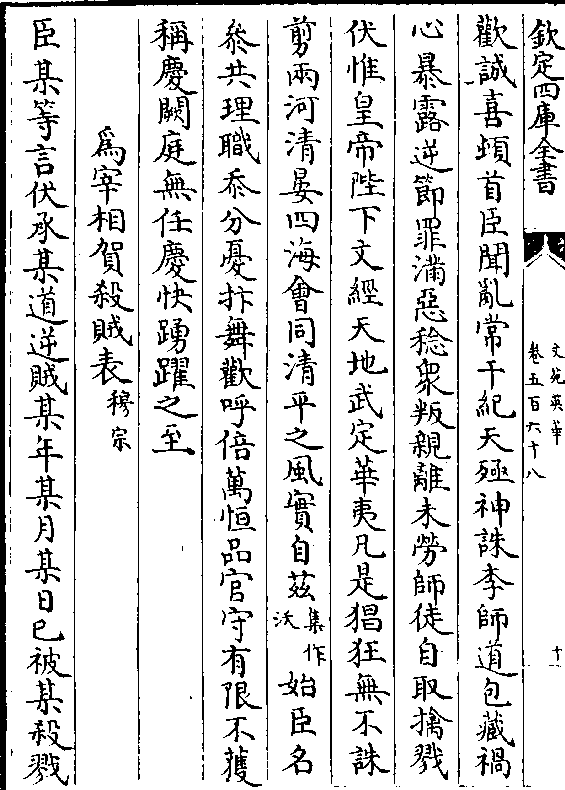 欽定四庫全書
文苑英華
卷五百六十八
十
歡誠喜頓首臣聞亂常干紀天殛神誅李師道包藏禍
心暴露逆節罪滿惡稔衆叛親離未勞師徒自取擒戮
伏惟皇帝陛下文經天地武定華夷凡是猖狂無不誅
剪兩河清晏四海會同清平之風實自兹集作沃始臣名
叅共理職忝分憂抃舞歡呼倍萬恒品官守有限不獲
稱慶闕庭無任慶快踴躍之至
爲宰相賀殺賊表穆宗
臣某等言伏承某道逆賊某年某月某日已被某殺戮